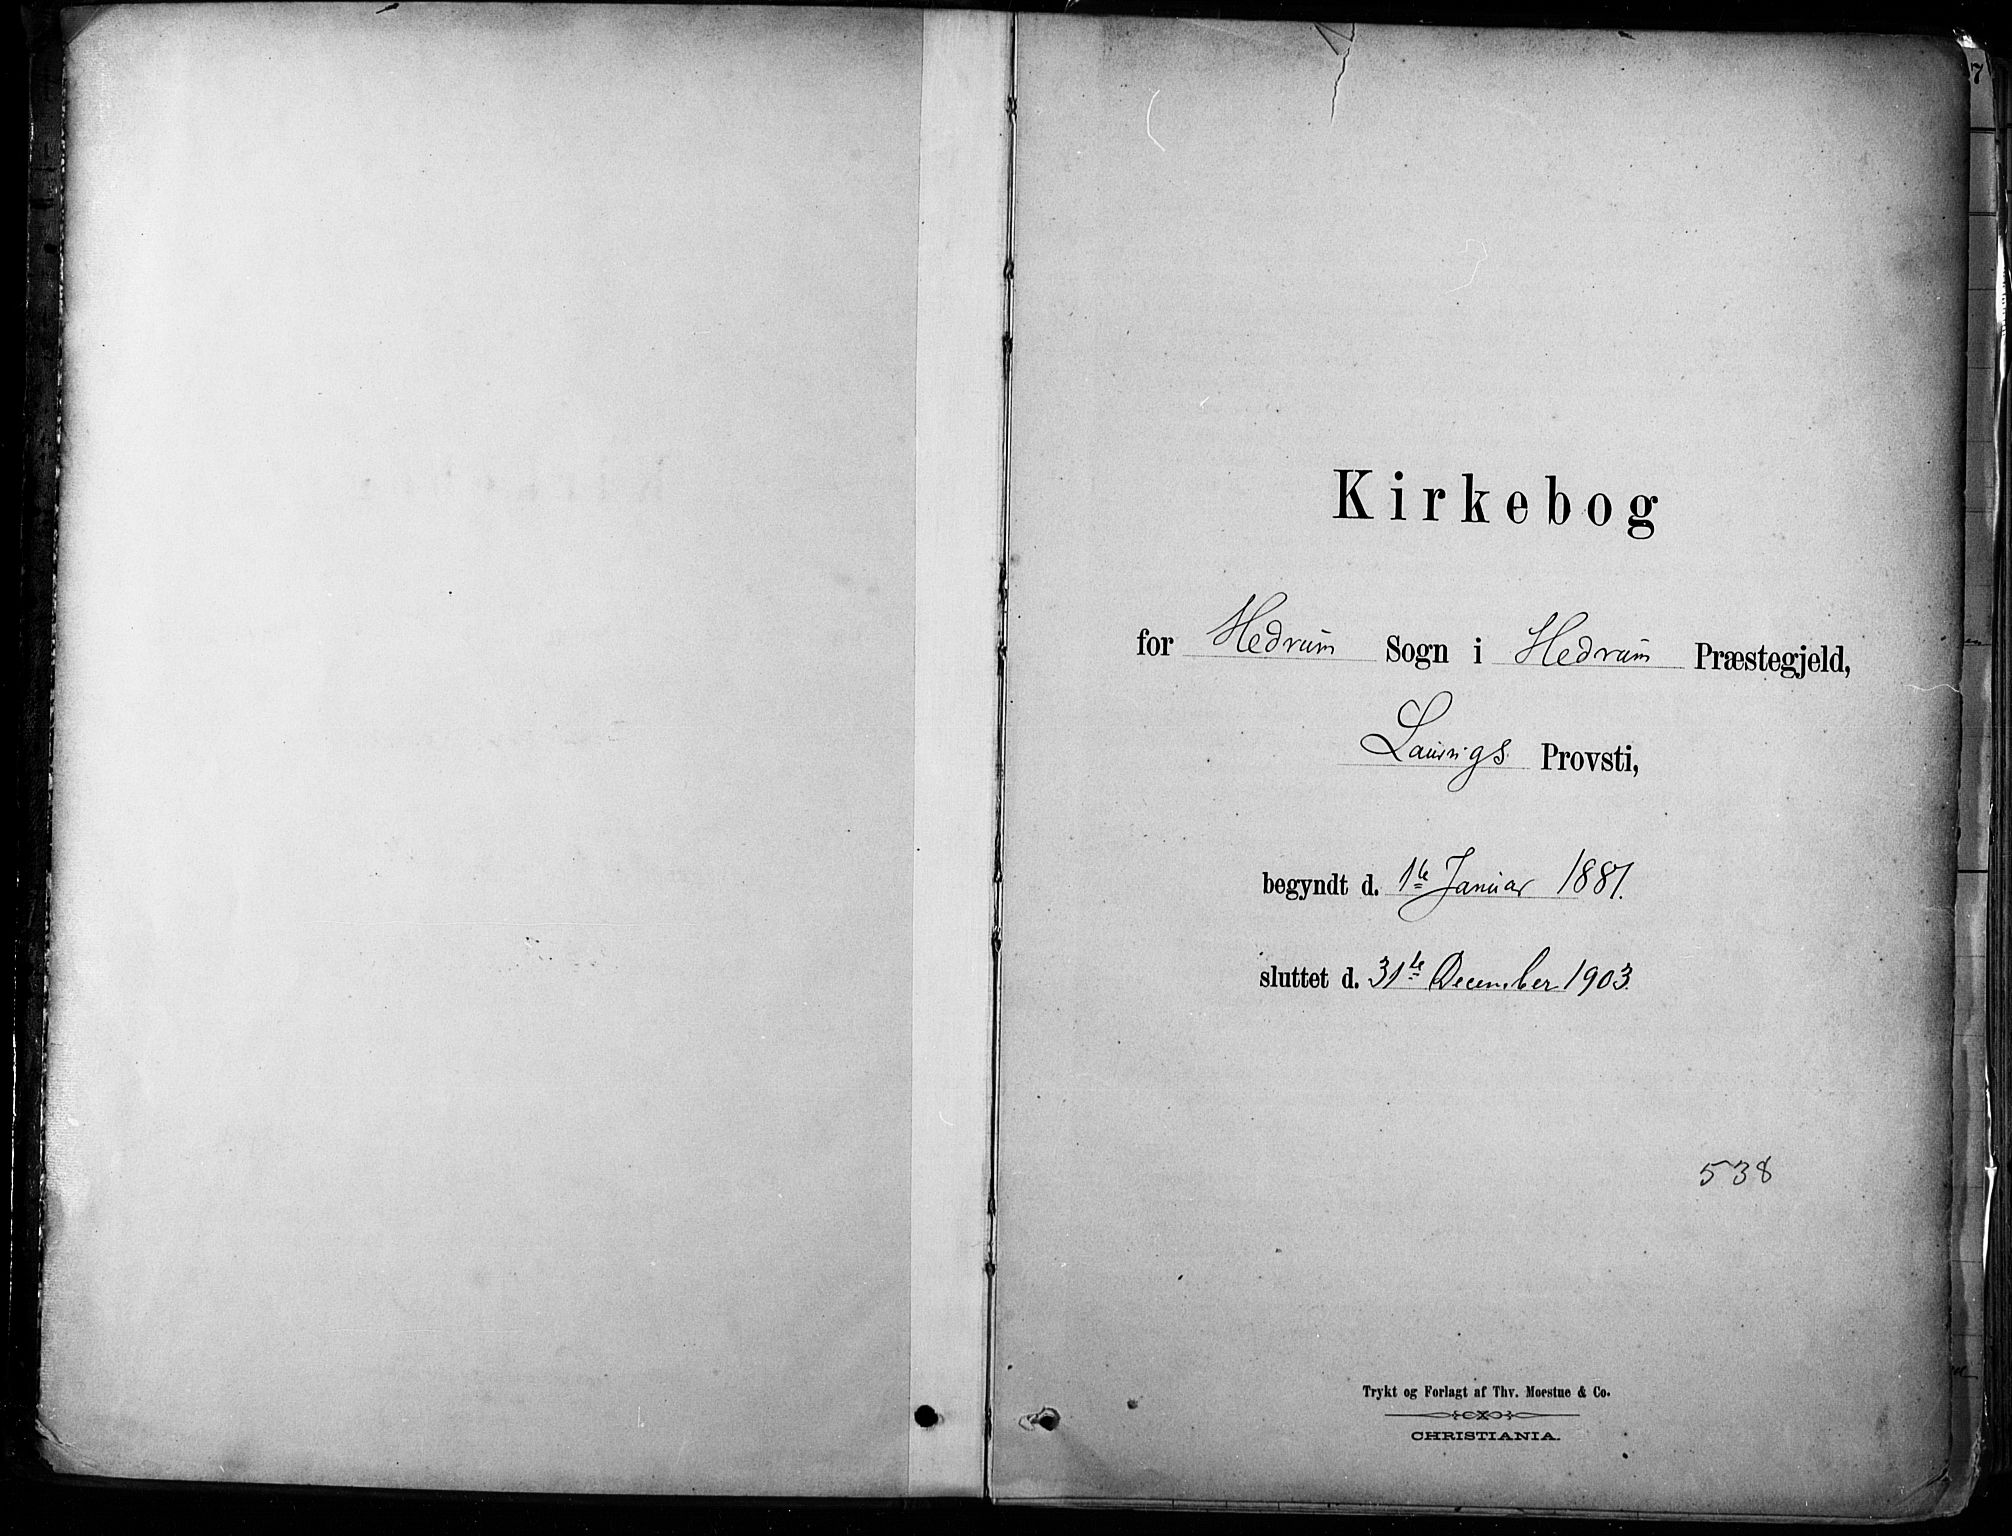 Kirkebog
for Hedrum Sogn i Hedrum Præstegjeld,
Laurvigs Provsti,
begyndt d. 1te Januar 1887.
sluttet d. 31te December 1903.
538
Trykt og Forlagt af Thv. Moestue & Co.
CHRISTIANIA.
7